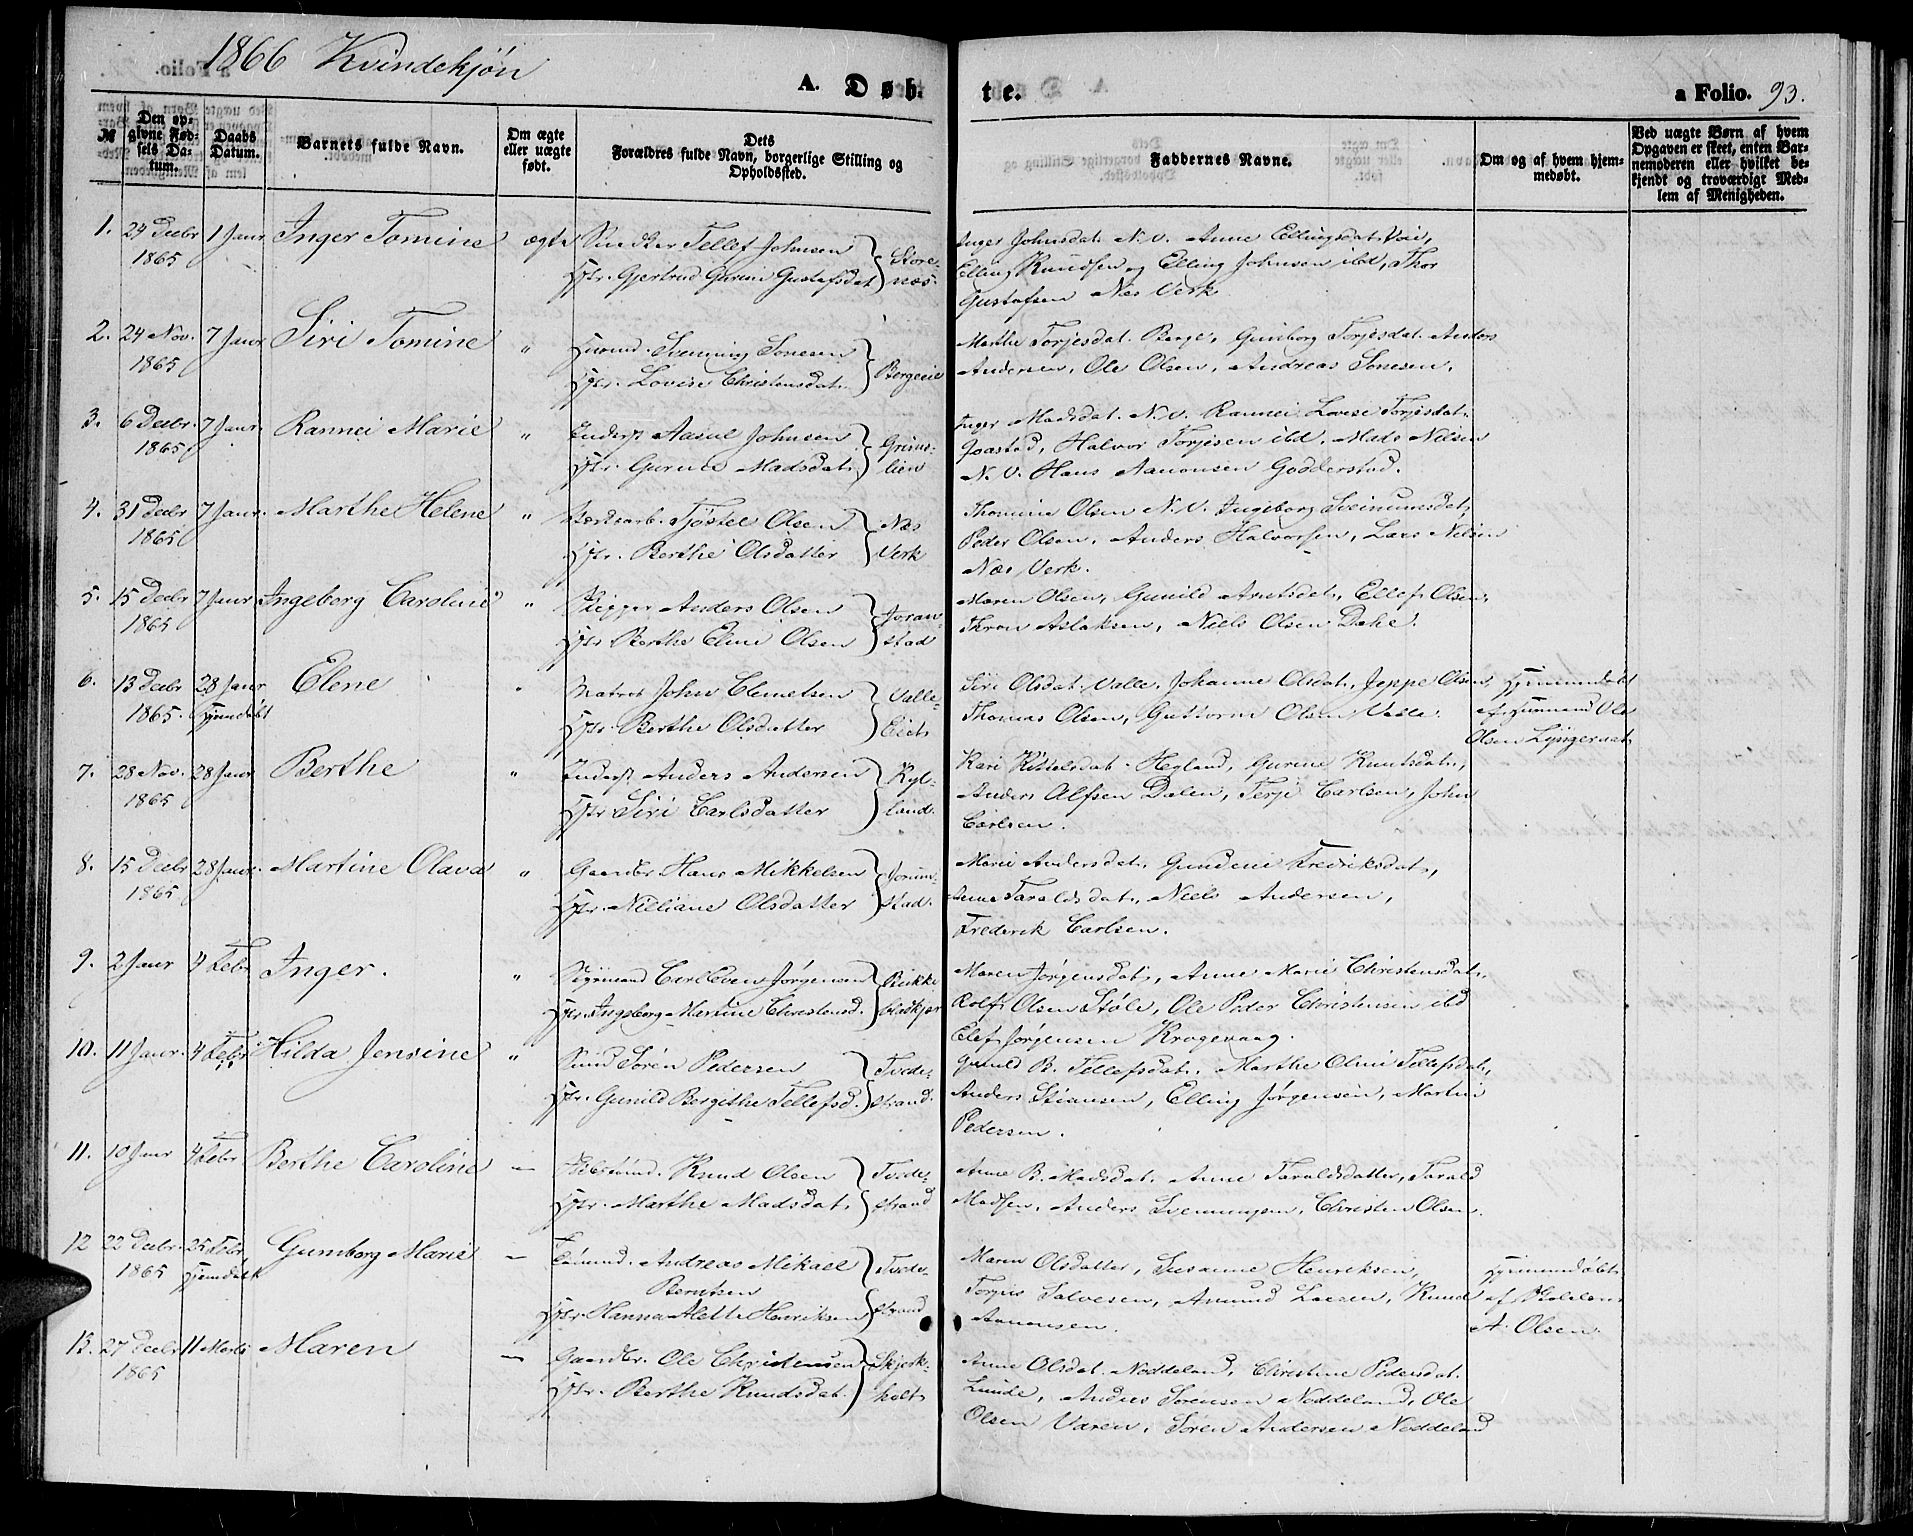 1866 Kvindekjøn
A. Døbte.
a Folio. 93.
№ | Den opgivne Fødsels Datum. | Daabs Datum. | Barnets fulde Navn. | Om ægte eller uægte født. | Dets Forældres fulde Navn, borgerlige Stilling og Opholdssted. | Faddernes Navne. | Om og af hvem hjemmedøbt. | Ved uægte Børn af hvem Opgaven er skeet, enten Barnemoderen eller hvilket bekjendt og troværdigt Medlem af Menigheden.
1. 24 Decbr 1 Janr Inger Tomine ægte Snedker Tellef Johnsen Store- Inger Johnsdat. N.V. Anne Ellingsdat. Voie,
1865 Hstr. Gjertrud Gurini Gustafsdat næs Elling Knudsen og Elling Johnsen ibd, Thor
Gustafsen Næs Verk
2. 24 Nov. 7 Janr Siri Tomine " Huusmd. Svenning Sonesen Marthe Torjesdat. Berge, Gunborg Torjesdat. Anders
1865 Hstr. Lovise Christensdat. Bergeeie Andersen, Ole Olsen, Andreas Sonesen.
3. 6 Decbr 7 Janr. Rannei Marie " Inderst Aasul Johnsen Grims- Inger Madsdat. N.V. Rannei Lovise Torjesdat.
1865 Hstr. Gurine Madsdat. lien Goastad, Halvor Torjesen ibd. Mads Nilsen
N.V. Hans Aanonsen Godderstad.
4. 31 Decbr 7 Janr. Marthe Helene " Værksarb. Tjøstel Olsen Næs Thomine Olsen N.V. Ingeborg Sveinunsdat.
1865 Hstr. Berthe Olsdatter Verk Peder Olsen, Anders Halvorsen, Lars Nilsen
Næs Verk.
5. 15 Decbr 7 Janr Ingeborg Caroline " Rigger Anders Olsen Joran- Maren Olsen, Gunild Arntsdat., Ellef Olsen,
1865 Hstr Berthe Eline Olsen stad Thron Aslaksen, Niels Olsen Dahl.
6. 13 Decbr 28 Janr Elene " Matros John Clemetsen Valle- Siri Olsdat. Valle. Johanne Olsdat, Jeppe Olsen, Hjemmedøbt
1865. Hjemdøbt Hstr. Berthe Olsdatter Eiet Thomas Olsen, Guttorm Olsen Valle. af Huusmand Ole
Olsen Lyngernæs
7. 28 Nov. 28 Janr Berthe " Inderst Anders Andersen Ryl- Kari Kittelsdat. Hegland, Gurine Knutsdat.,
1865 Hstr Siri Carlsdatter land. Anders Alfsen Dalen, Terje Carlsen, John
Carlsen.
8. 15 Decbr 28 Janr. Martine Olava " Gaardbr Hans Mikkelsen Jorun- Marie Andersdat. Gundine Fredriksdat.,
1865 Hstr. Nilliane Olsdatter stad. Anne Taraldsdat., Niels Andersen,
Frederik Carlsen.
9. 2 Janr 4 Febr Inger. " Styrmand Carl Even Jørgensen Rukke Maren Jørgensdat., Anne Marie Christensdat.
Hstr. Ingeborg Martine Christensd. Rolf Olsen Støle, Ole Peder Christensen ibd
Elef Jørgensen Krogevaag.
10. 11 Janr. 4 Febr Hilda Jensine " Smed Søren Pedersen Tvede- Gunild B. Tellefsdat. Marthe Olini Tellefsdat.,
Hstr. Gunild Bergithe Tellefsd. strand. Anders Stiansen, Elling Jørgensen, Martin
Pedersen.
11. 10 Janr 4 Febr Berthe Caroline — Knud Olsen Tvede- Anne B. Madsdat. Anne Taraldsdatter, Tarald
Hstr. Marthe Madsdat. strand Madsen, Anders Svenningsen, Christen Olsen.
12 22 Decbr. 25 Febr. Gunborg Marie — Tømmd. Andreas Mikael Tvede- Maren Olsdatter, Susanne Henriksen, Hjemmedøbt
1865 Hjemdøbt Berntsen Torjus Salvesen, Amund Larsen, Knud af
Hstr Hanna Alette Henriksen strand Aanonsen. A. Olsen.
13. 27 Decbr 11 Marts Maren — Gaardbr. Ole Christensen Skjerk- Anne Olsdat. Noddeland, Christine Pedersdat.
1865 Hstr. Berthe Knudsdat. holt Lunde, Anders Sørensen Noddeland, Ole
Olsen Varen, Søren Andersen Noddeland